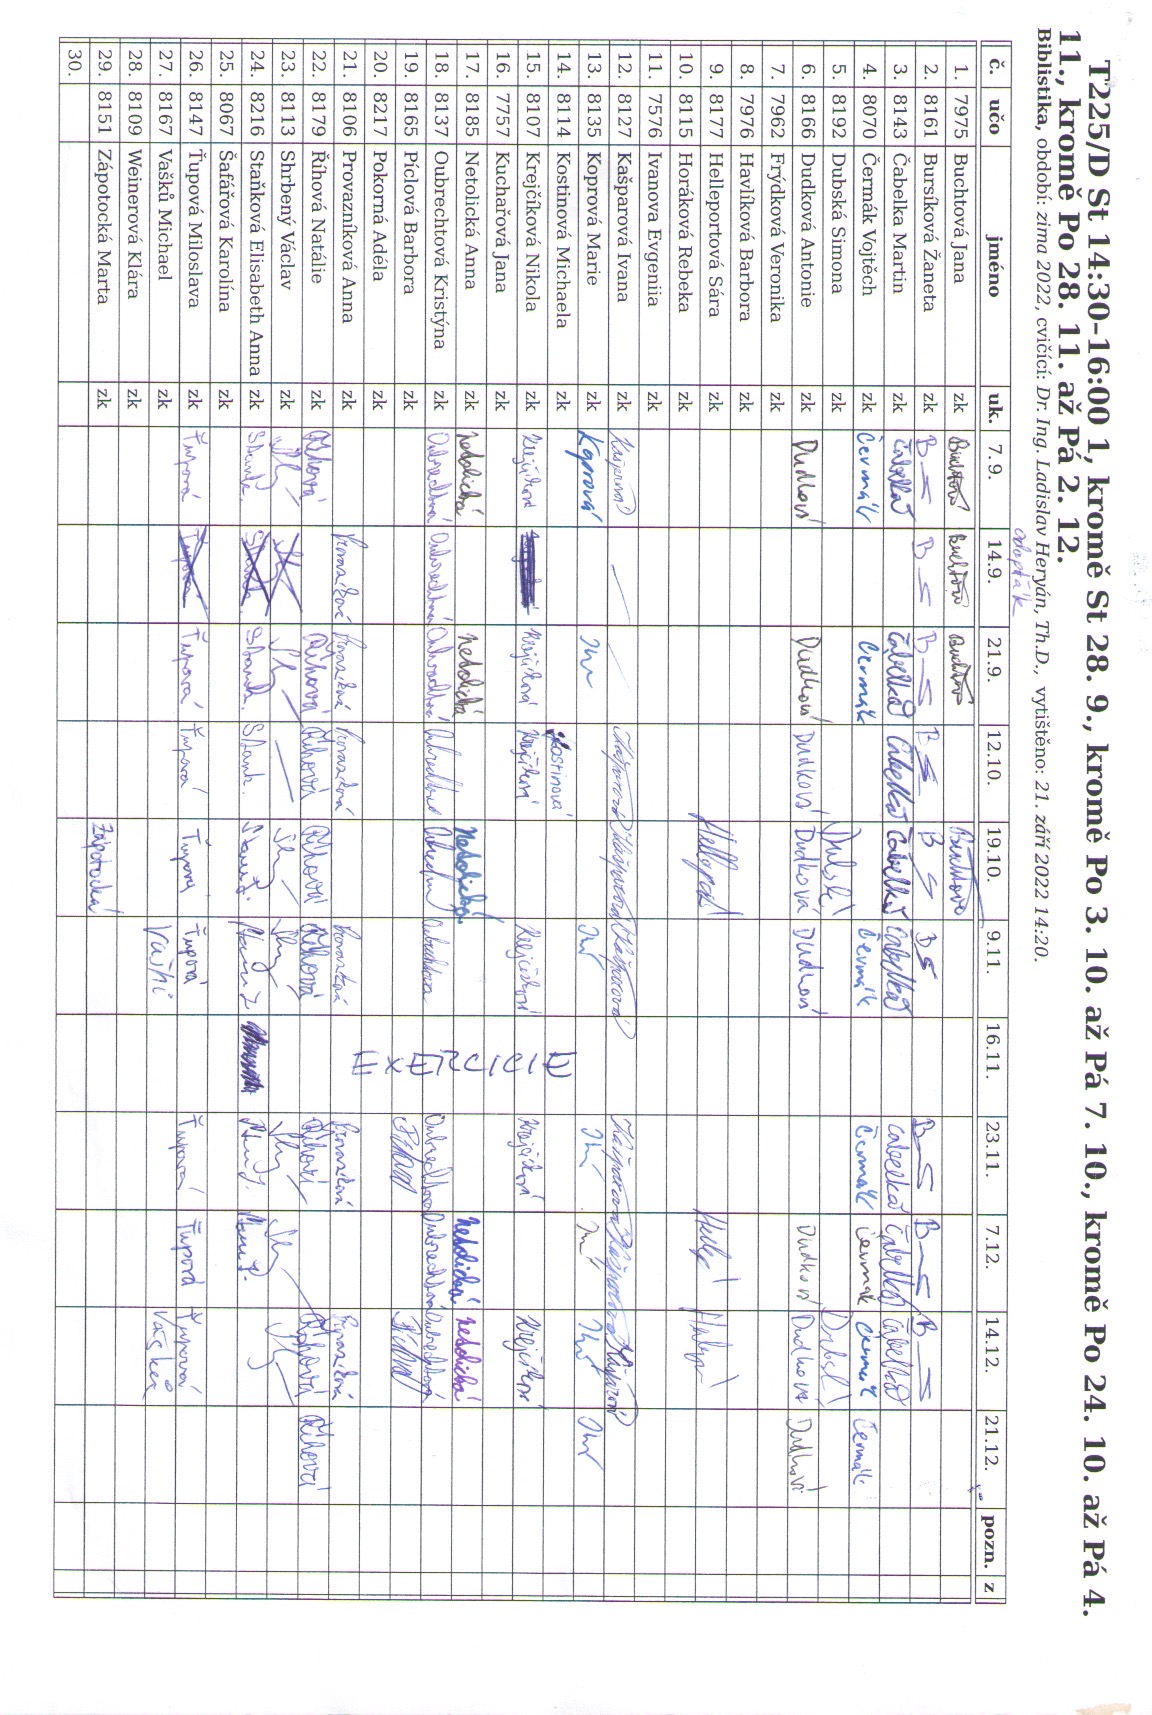 T225/D St 14:30-16:00 1, kromě St 28. 9., kromě Po 3. 10. až Pá 7. 10., kromě Po 24. 10. až Pá 4.
11., kromě Po 28. 11. až Pá 2. 12.
Biblistika, období: zima 2022, cvičící: Dr. Ing. Ladislav Heryán, Th.D., vytištěno: 21. září 2022 14:20.
adepťák
č. učo jméno uk. 7.9. 14.9. 21.9. 12.10. 19.10. 9.11. 16.11. 23.11. 7.12. 14.12. 21.12. pozn. z
1. 7975 Buchtová Jana zk
2. 8161 Bursíková Žaneta zk B B B B B B B B B
3. 8143 Čabelka Martin zk Čabelka Čabelka Čabelka Čabelka Čabelka Čabelka Čabelka Čabelka
4. 8070 Čermák Vojtěch zk Čermák Čermák Čermák Čermák Čermák Čermák Čermák
5. 8192 Dubská Simona zk
6. 8166 Dudková Antonie zk Dudková Dudková Dudková Dudková Dudková Dudková Dudková Dudková
7. 7962 Frýdková Veronika zk
8. 7976 Havlíková Barbora zk
9. 8177 Helleportová Sára zk
10. 8115 Horáková Rebeka zk
11. 7576 Ivanova Evgeniia zk
12. 8127 Kašparová Ivana zk Kašparová Kašparová Kašparová Kašparová Kašparová Kašparová Kašparová
13. 8135 Koprová Marie zk Koprová
14. 8114 Kostinová Michaela zk Kostinová
15. 8107 Krejčíková Nikola zk Krejčíková Krejčíková Krejčíková Krejčíková Krejčíková Krejčíková
16. 7757 Kuchařová Jana zk
EXERCICIE
17. 8185 Netolická Anna zk Netolická Netolická Netolická Netolická Netolická
18. 8137 Oubrechtová Kristýna zk Oubrechtová Oubrechtová Oubrechtová Oubrechtová Oubrechtová Oubrechtová Oubrechtová Oubrechtová Oubrechtová
19. 8165 Píclová Barbora zk
20. 8217 Pokorná Adéla zk
21. 8106 Provazníková Anna zk
22. 8179 Říhová Natálie zk Říhová Říhová Říhová Říhová Říhová Říhová Říhová Říhová
23. 8113 Shrbený Václav zk
24. 8216 Staňková Elisabeth Anna zk
25. 8067 Šafářová Karolína zk
26. 8147 Ťupová Miloslava zk Ťupová Ťupová Ťupová Ťupová Ťupová Ťupová Ťupová Ťupová Ťupová
27. 8167 Vašků Michael zk Vašků Vašků
28. 8109 Weinerová Klára zk
29. 8151 Zápotocká Marta zk Zápotocká
30.